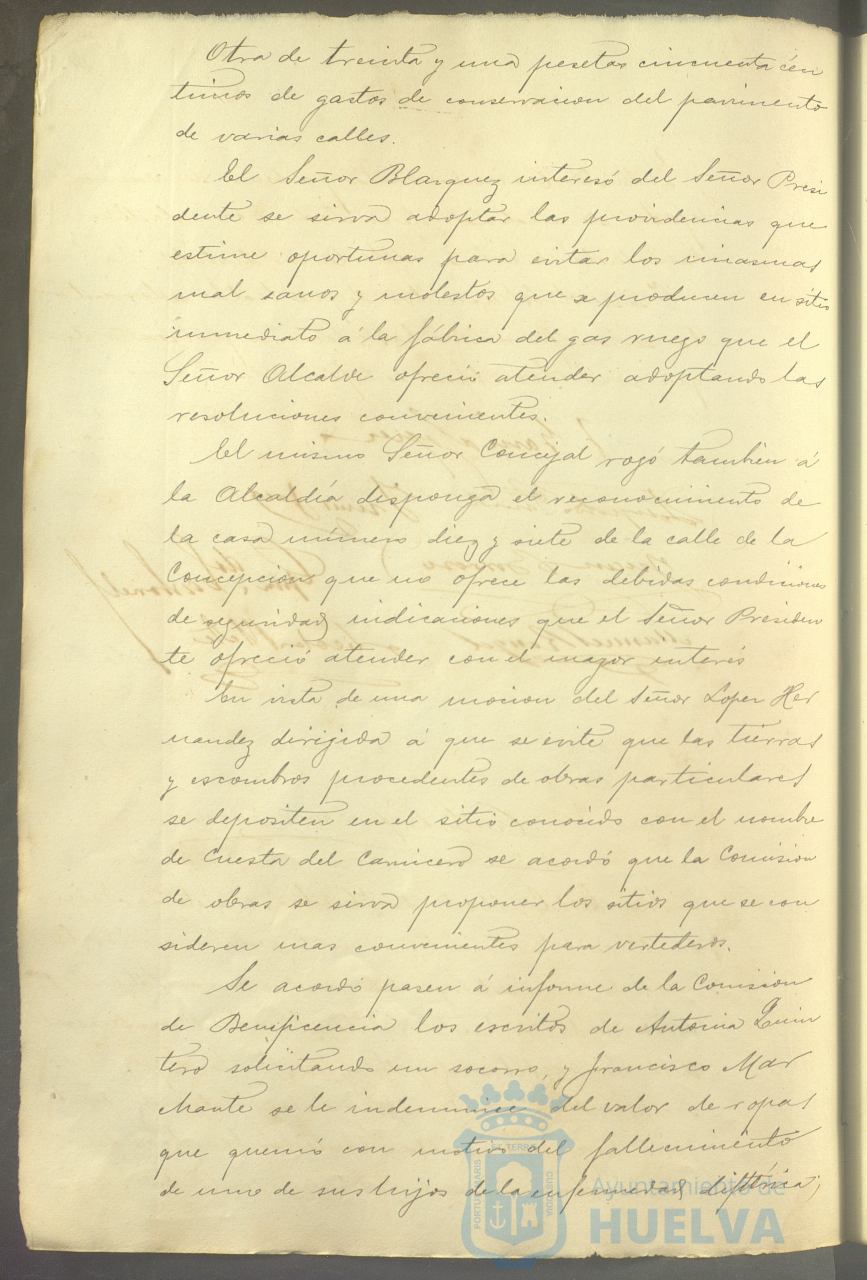 Otra de treinta y una pesetas cincuenta cén
timos de gastos de conservacion del pavimento
de varias calles.
El Señor Blazquez interesó del Señor Presi
dente se sirva adoptar las providencias que
estime oportunas para evitar los miasmas
mal sanos y molestos que se producen en sitio
inmediato á la fábrica del gas ruego que el
Señor Alcalde ofreció atender adoptando las
resoluciones convenientes.
El mismo Señor Concejal rogó tambien á
la Alcaldía disponga el reconocimiento de
la casa número diez y siete de la calle de la
Concepcion que no ofrece las debidas condiciones
de seguridad, indicaciones que el Señor Presiden
te ofreció atender con el mayor interés
En vista de una mocion del Señor Lopez Her
nandez dirijida á que se evite que las tierras
y escombros procedentes de obras particulares
se depositen en el sitio conocido con el nombre
de Cuesta del Carnicero se acordó que la Comision
de obras se sirva proponer los sitios que se con
sideren mas convenientes para vertederos.
Se acordó pasen á informe de la Comision
de Beneficencia los escritos de Antonia Quin
tero solicitando un socorro, y Francisco Mar
chante se le indemnice del valor de ropas
que quemó con motivo del fallecimiento
de uno de sus hijos de la enfermedad diftérica,
PORTUS MARIS ET TERRAE CUSTODIA
Ayuntamiento de
HUELVA